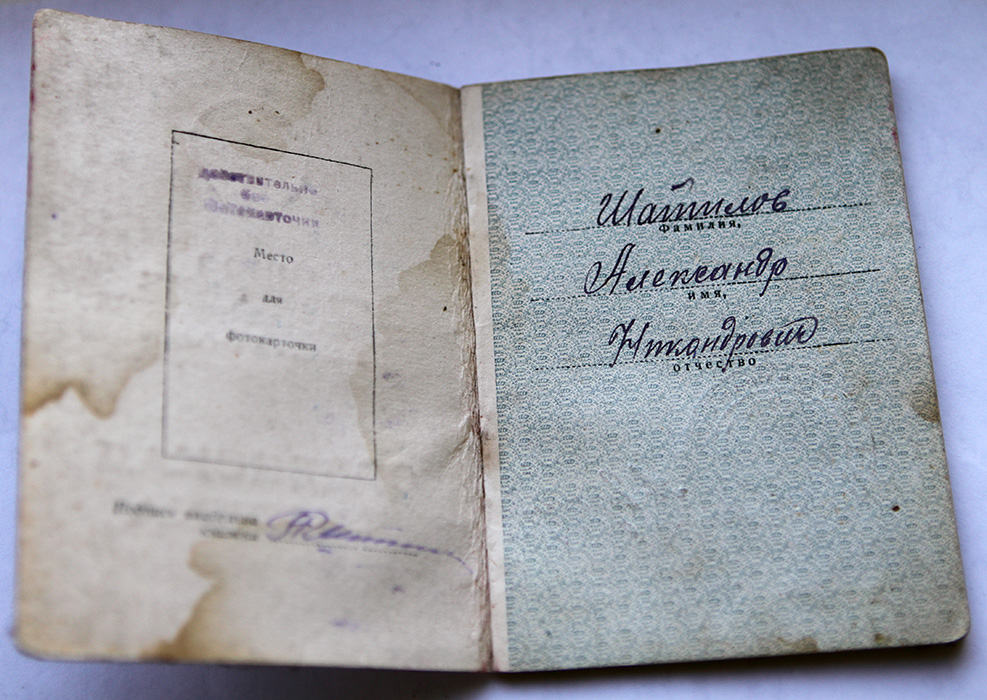 действительно
без
фотокарточки
Место
для
фотокарточки
Подпись владельца
книжки
Шатилов
Фамилия,
Александр
имя,
Никандрович
отчество